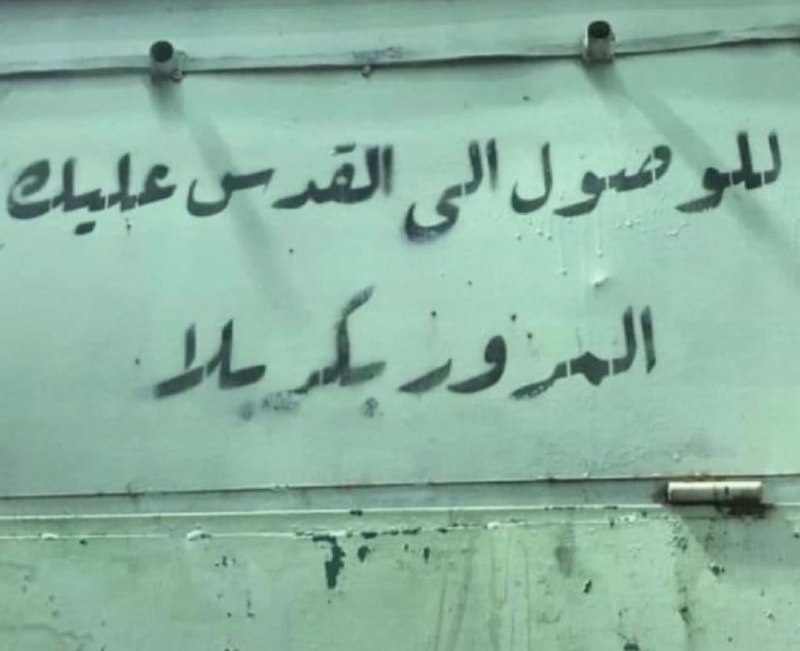 للوصول الى القدس عليك
المرور بكربلا